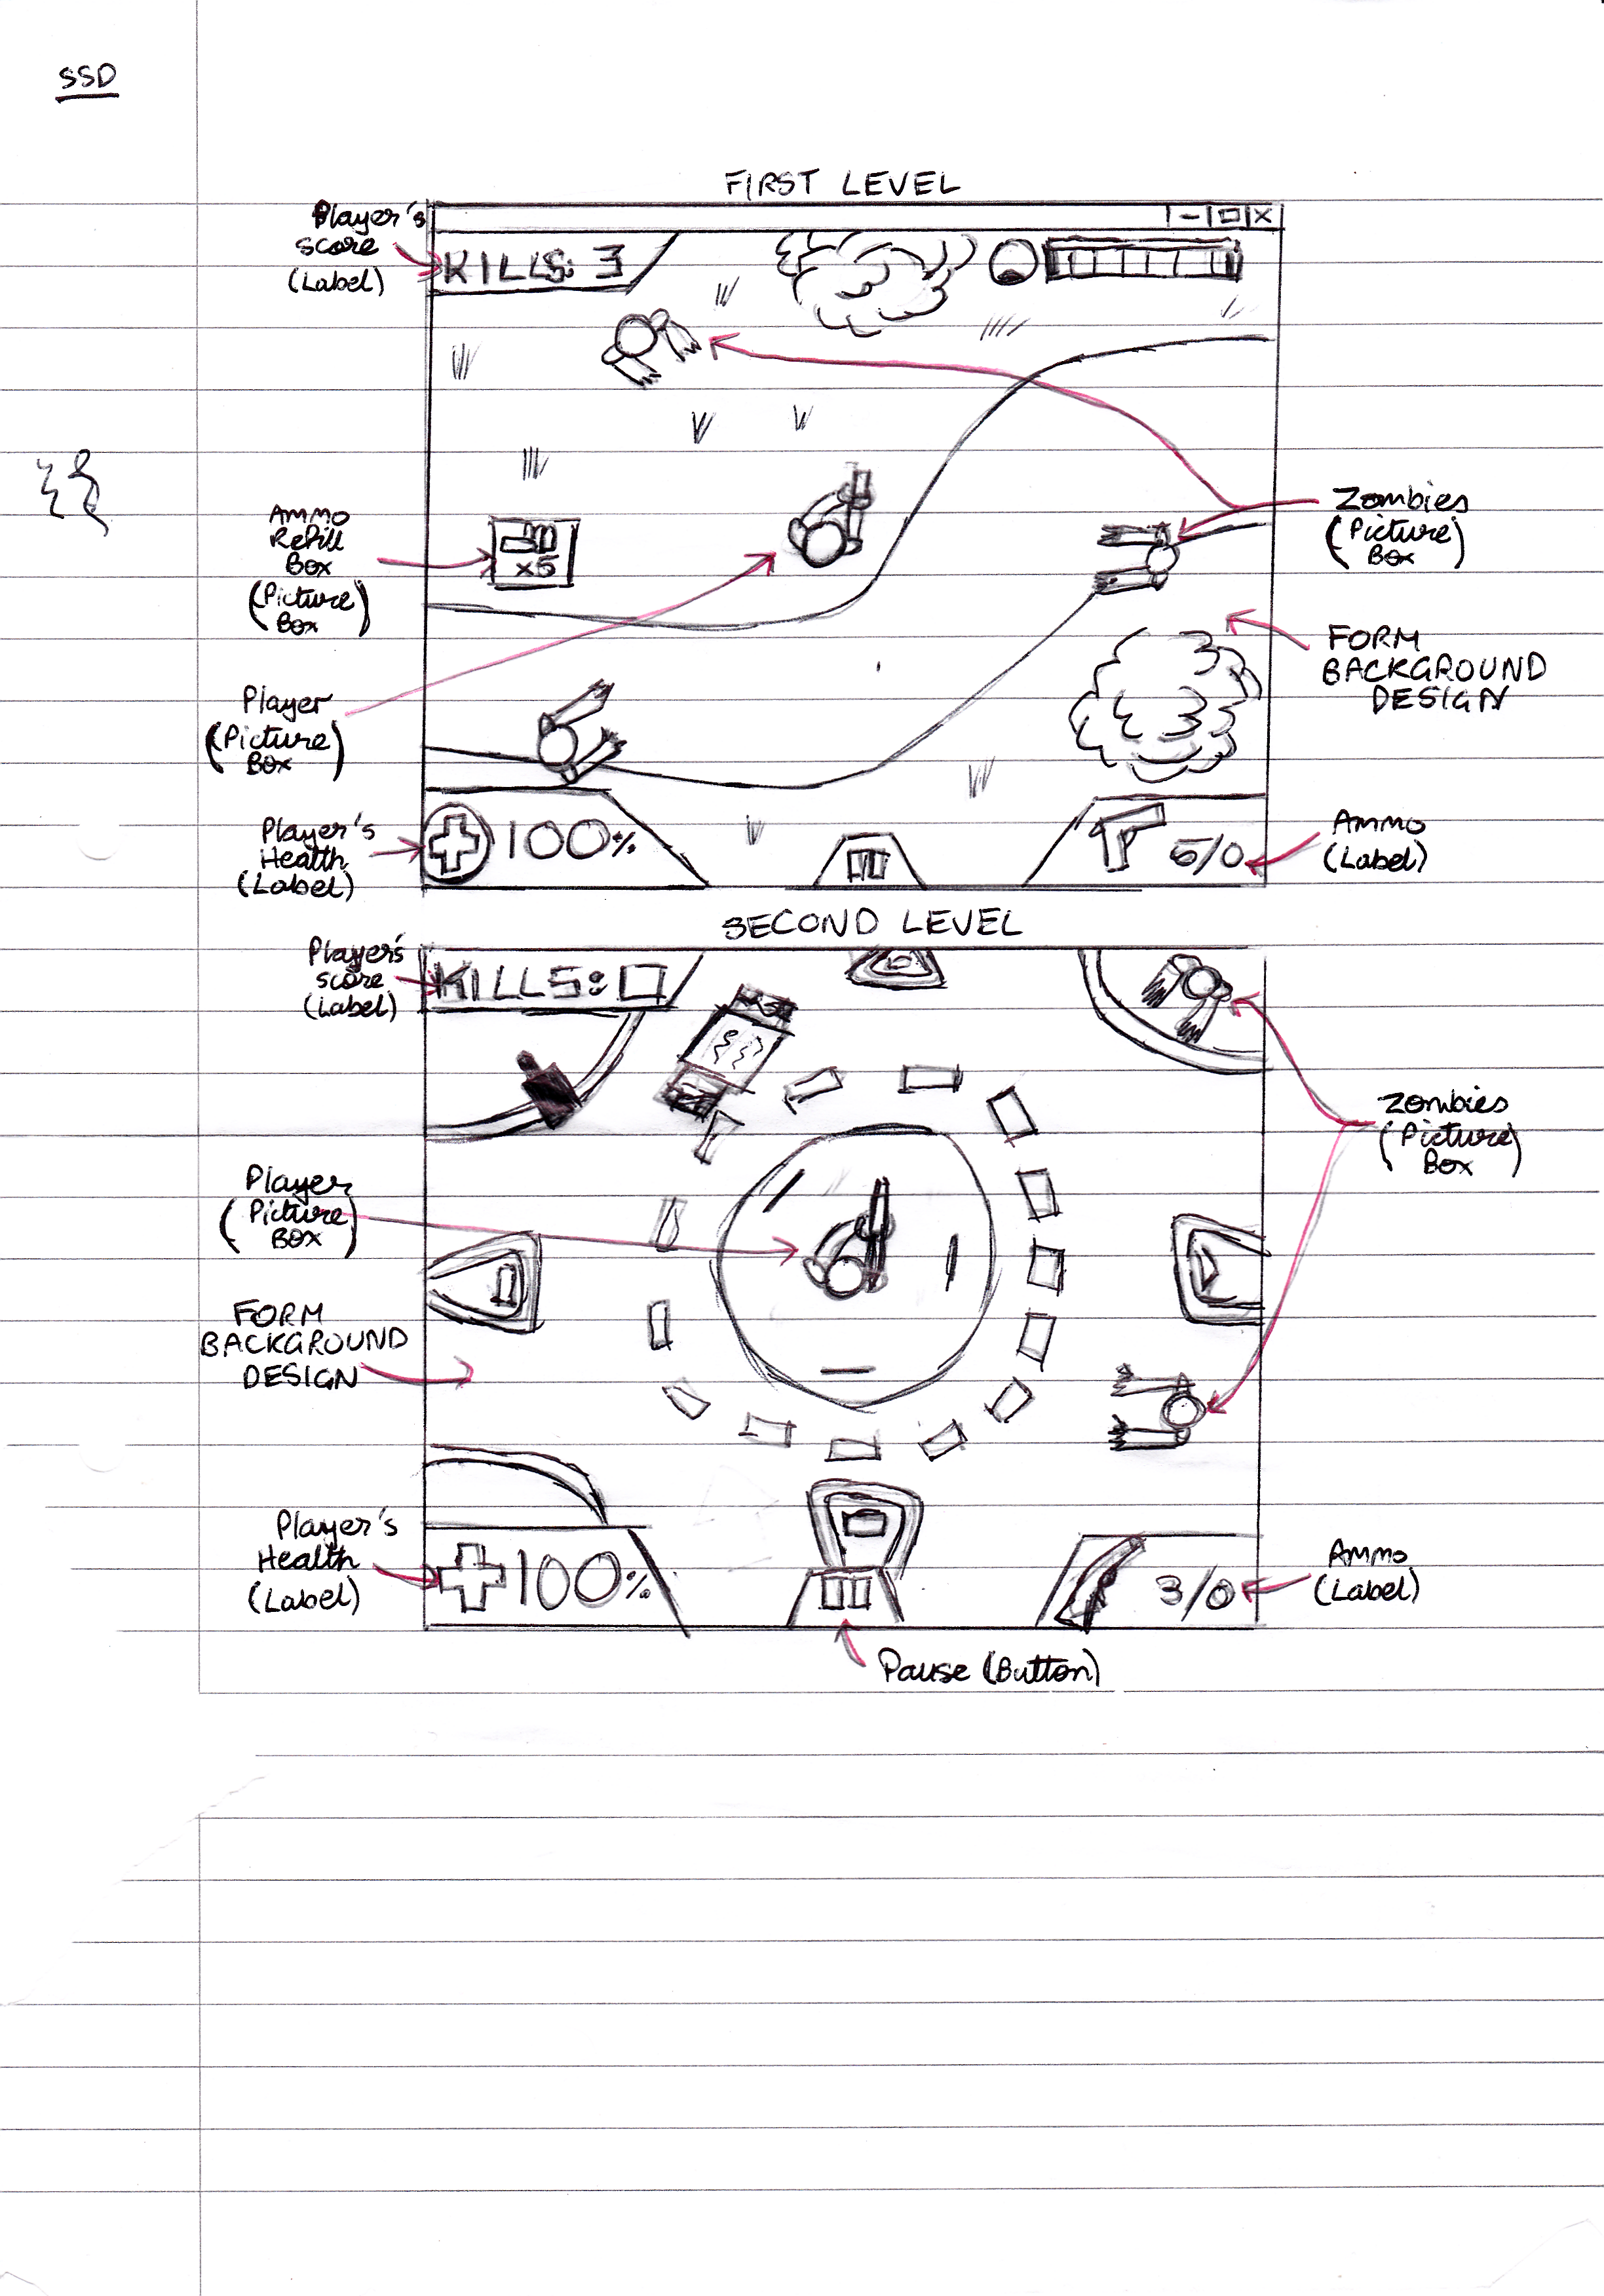 SSD
FIRST LEVEL
Player's
score
(Label)
KILLS: 3
Zombies
(Picture
Box)
Ammo
Refill
Box
(Picture
Box)
x5
FORM
BACKGROUND
DESIGN
Player
(Picture
Box)
Player's
Health
(Label)
100%
5/0
Ammo
(Label)
SECOND LEVEL
Player's
score
(Label)
KILLS: 0
Zombies
(Picture
Box)
Player
(Picture
Box)
FORM
BACKGROUND
DESIGN
Player's
Health
(Label)
100%
3/0
Ammo
(Label)
Pause (Button)